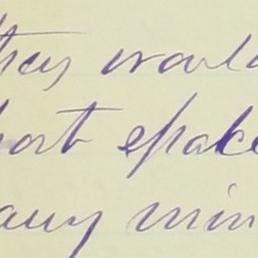 they would
hort space
any min